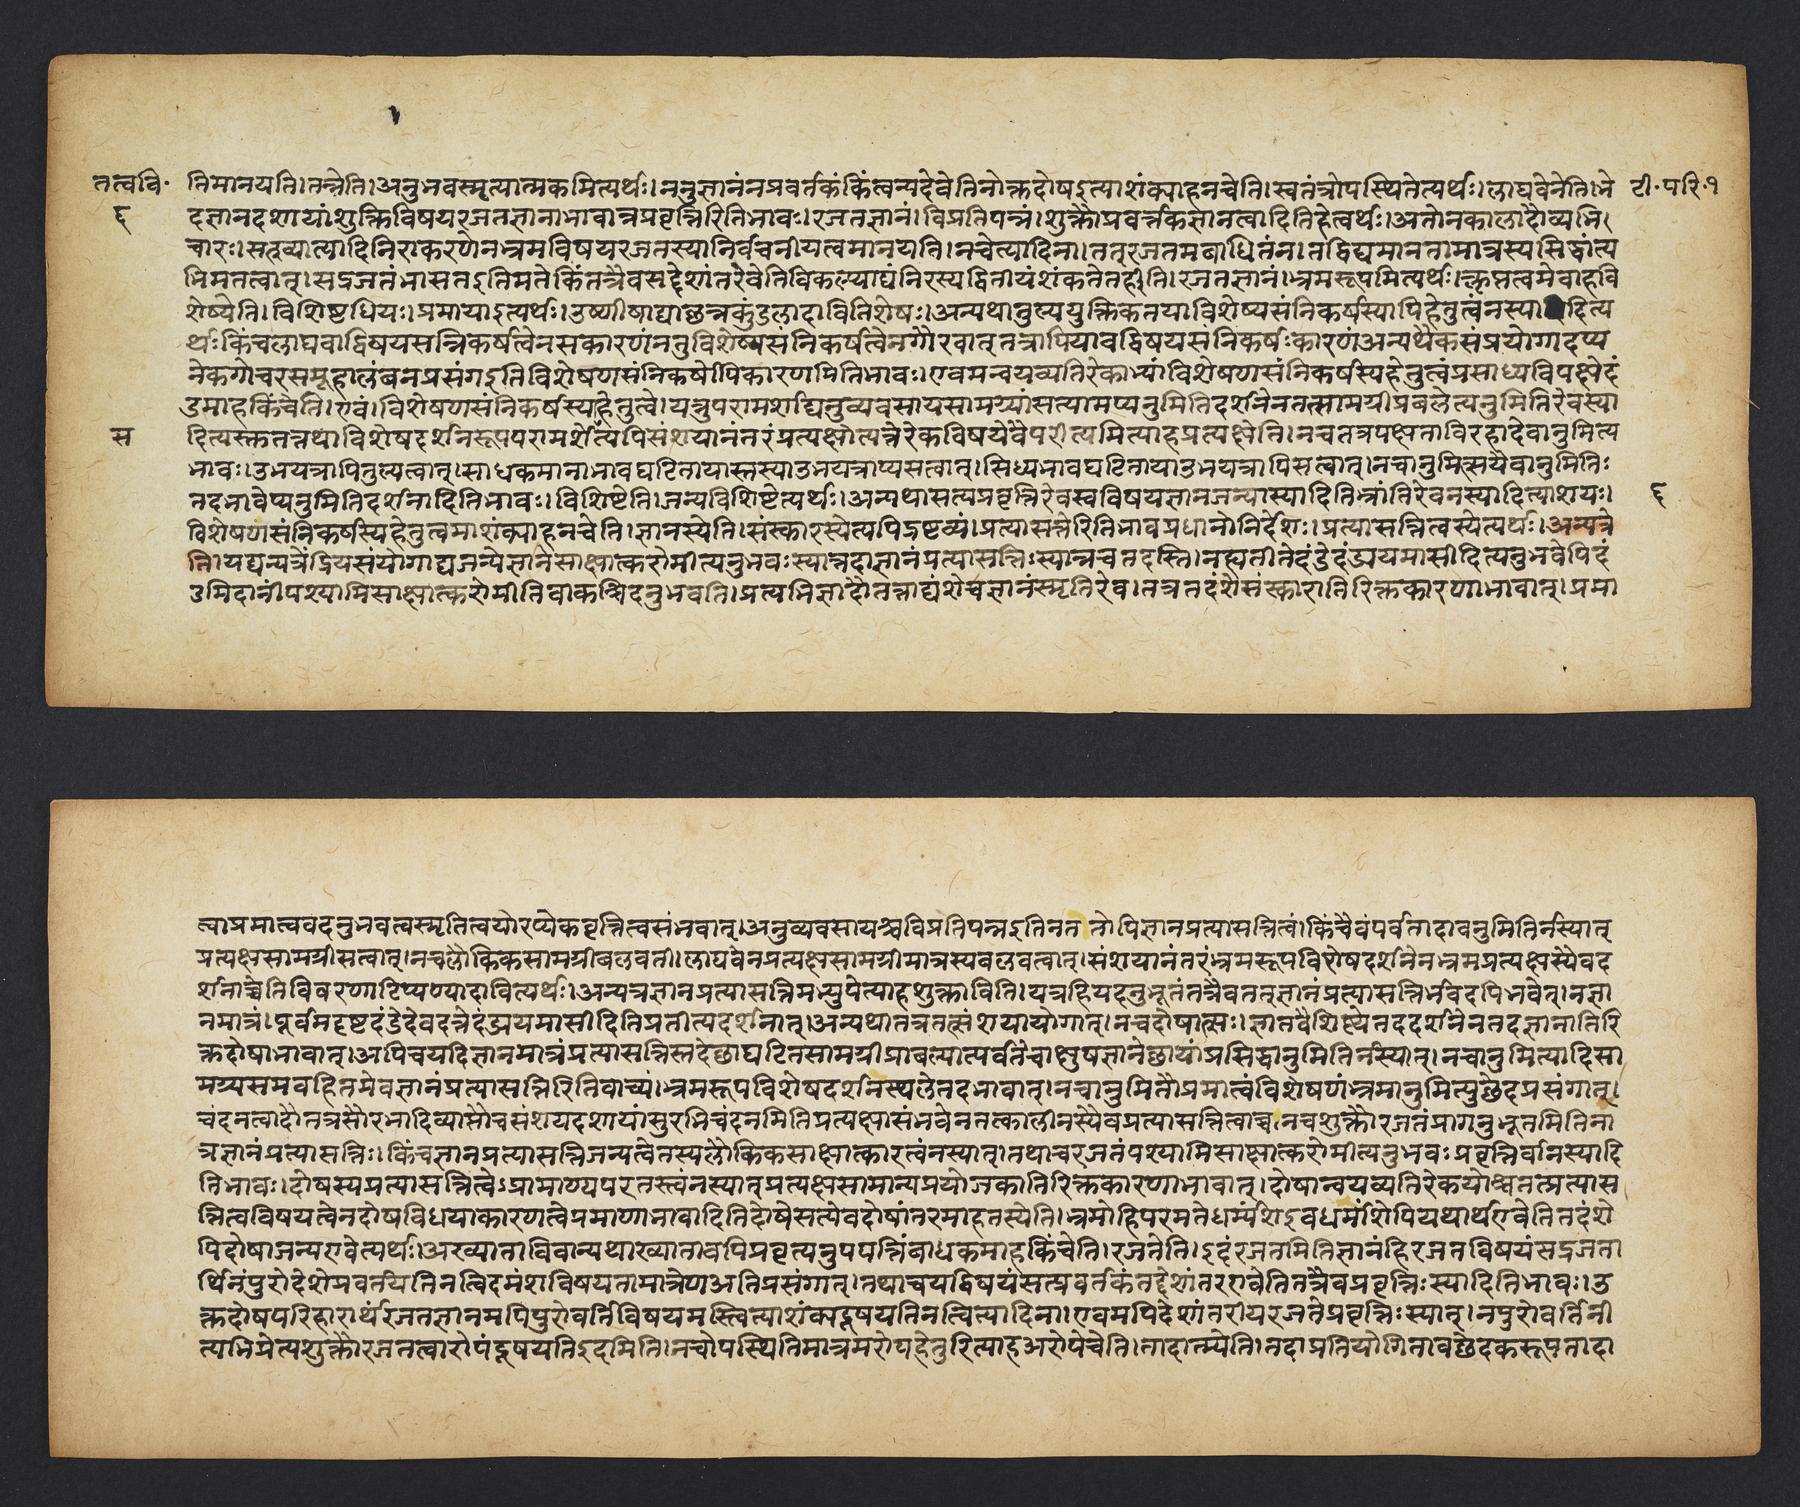 तत्ववि॰ तिमानयति।तन्नेति।अनुभवस्मृत्यात्मकमित्यर्थः।ननुज्ञानंनप्रवर्तकंकिंत्वन्यदेवेतिनोक्तदोषइत्याशंक्याहनचेति।स्वतंत्रोपस्थितेत्यर्थः।लाघवेनेति।भे टी॰परि॰१
६ दज्ञानदशायांशुक्तिविषयरजतज्ञानाभावान्नप्रवृत्तिरितिभावः।रजतज्ञानं।विप्रतिपन्नं।शुक्तौप्रवर्त्तकज्ञानत्वादितिहेत्वर्थः।अतोनकालादौव्यभि।
चारः।सत्ख्यात्यादिनिराकरणेनभ्रमविषयरजतस्यानिर्वचनीयत्वमानयति।नचेत्यादिना।तत्रजतमबाधितंन।तद्विद्यमानतामात्रस्यसिद्धांत्य
भिमतत्वात्।सद्रजतंभासतइतिमतेकिंतत्रैवसद्देशांतरेवेतिविकल्प्याद्यंनिरस्यद्वितीयंशंकतेतर्हीति।रजतज्ञानं।भ्रमरूपमित्यर्थः।कॢप्तत्वमेवाहवि
शेष्येति।विशिष्टधियः।प्रमायाइत्यर्थः।उष्णीषाद्याछन्नकुंडलादावितिशेषः।अन्यथातुल्ययुक्तिकतयाविशेष्यसंनिकर्षस्यापिहेतुत्वंनस्यादित्य
र्थः।किंचलाघवाद्विषयसन्निकर्षत्वेनसकारणंनतुविशेष्यसंनिकर्षत्वेनगौरवात्तत्रापियावद्विषयसंनिकर्षःकारणंअन्यथैकसंप्रयोगादप्य
नेकगोचरसमूहालंबनप्रसंगइतिविशेषणसंनिकर्षोपिकारणमितिभावः।एवमन्वयव्यतिरेकाभ्यांविशेषणसंनिकर्षस्यहेतुत्वंप्रसाध्यविपक्षेदं
डमाहकिंचेति।एवं।विशेषणसंनिकर्षस्यहेतुत्वे।यत्तुपरामर्शाद्यनुव्यवसायसामग्र्यांसत्यामप्यनुमितिदर्शनेनतत्सामग्रीप्रबलेत्यनुमितिरेवस्या
स दित्यस्क्ततन्नथाविशेषदर्शनरूपपरामर्शेत्यपिसंशयानंतरंप्रत्यक्षोत्पत्तेरेकविषयेवैपरीत्यमित्याहप्रत्यक्षेति।नचतत्रपक्षताविरहादेवानुमित्य
भावः।उभयत्रापितुल्यत्वात्।साधकमानाभावघटितायास्तस्याउभयत्राप्यसत्वात्।सिध्यभावघटितायाउभयत्रापिसत्वात्।नचानुमित्सयैवानुमितिः
तदभावेप्यनुमितिदर्शनादितिभावः।विशिष्टेति।जन्यविशिष्टेत्यर्थः।अन्यथासत्यप्रवृत्तिरेवस्वविषयज्ञानजन्यास्यादितिभ्रांतिरेवनस्यादित्याशयः। ६
विशेषणसंनिकर्षस्यहेतुत्वमाशंक्याहनचेति।ज्ञानस्येति।संस्कारस्येत्यपिद्रष्टव्यं।प्रत्यासत्तेरितिभावप्रधानोनिर्देशः।प्रत्यासत्तित्वस्येत्यर्थः।अन्यत्रे
ति।यद्यन्यत्रेंद्रियसंयोगाद्यजन्येज्ञानेसाक्षात्करोमीत्यनुभवःस्यात्तदाज्ञानंप्रत्यासत्तिःस्यान्नचतदस्ति।नह्यतीतेदंडेदंड्ययमासीदित्यनुभवेपिदं
डमिदानींपश्यामिसाक्षात्करोमीतिवाकश्चिदनुभवति।प्रत्यभिज्ञादौतत्ताद्यंशेचज्ञानंस्मृतिरेव।तत्रतदंशेसंस्कारातिरिक्तकारणाभावात्।प्रमा
त्वाप्रमात्ववदनुभवत्वस्मृतित्वयोरप्येकवृत्तित्वसंभवात्।अनुव्यवसायश्चविप्रतिपन्नइतिनततोपिज्ञानप्रत्यासत्तित्वं।किंचैवंपर्वतादावनुमितिर्नस्यात्
प्रत्यक्षसामग्रीसत्वात्।नचलौकिकसामग्रीबलवती।लाघवेनप्रत्यक्षसामग्रीमात्रस्यबलवत्वात्।संशयानंतरंभ्रमरूपविशेषदर्शनेनभ्रमप्रत्यक्षस्यैवद
र्शनाच्चेतिविवरणाटिप्पण्यादावित्यर्थः।अन्यत्रज्ञानप्रत्यासत्तिमभ्युपेत्याहशुक्ताविति।यत्रहियदनुभूतंतत्रैवतत्ज्ञानंप्रत्यासत्तिर्भवेदपिभवेत्।नज्ञा
नमात्रं।पूर्वमदृष्टदंडेदेवदत्तेदंड्ययमासीदितिप्रतीत्यदर्शनात्।अन्यथातत्रतत्संशयायोगात्।नचदोषात्सः।ज्ञातवैशिष्ट्येतददर्शनेनतदज्ञानातिरि
क्तदोषाभावात्।अपिचयदिज्ञानमात्रंप्रत्यासत्तिस्तदेछाघटितसामग्रीप्राबल्यात्पर्वतेचाक्षुषज्ञानेछायांप्रसिद्धानुमितिर्नस्यात्।नचानुमित्यादिसा
मग्र्यसमवहितमेवज्ञानंप्रत्यासत्तिरितिवाच्यं।भ्रमरूपविशेषदर्शनस्थलेतदभावात्।नचानुमितौप्रमात्वंविशेषणंभ्रमानुमित्युछेदप्रसंगात्।
चंदनत्वादौतत्रसौरभादिव्याप्तौचसंशयदशायांसुरभिचंदनमितिप्रत्यक्षासंभवेनतत्कालीनस्यैवप्रत्यासत्तित्वाच्च।नचशुक्तौरजतंप्रागनुभूतमितिना
त्रज्ञानंप्रत्यासत्तिः।किंचज्ञानप्रत्यासत्तिजन्यत्वेतस्यलौकिकसाक्षात्कारत्वंनस्यात्।तथाचरजतंपश्यामिसाक्षात्करोमीत्यनुभवःप्रवृत्तिर्वानस्यादि
तिभावः।दोषस्यप्रत्यासत्तित्वेऽप्रामाण्यपरतस्त्वंनस्यात्प्रत्यक्षसामान्यप्रयोजकातिरिक्तकारणाभावात्।दोषान्वयव्यतिरेकयोश्चनत्प्रत्यास
त्तित्वविषयत्वेनदोषविधयाकारणत्वेप्रमाणाभावादितिदोषेसत्येवदोषांतरमाहतस्येति।भ्रमोहिपरमतेधर्म्यंशेइवधर्मांशेपियथार्थएवेतितदंशे
पिदोषाजन्यएवेत्यर्थः।अख्याताविवान्यथाख्यातावपिप्रवृत्यनुपपत्तिंबाधकमाहकिंचेति।रजतेति।इदंरजतमितिज्ञानंहिरजतविषयंसद्रजता
र्थिनंपुरोदेशेप्रवर्तयतिनत्विदमंशविषयतामात्रेणअतिप्रसंगात्।तथाचयद्विषयंसत्प्रवर्तकंतद्देशांतरएवेतितत्रैवप्रवृत्तिःस्यादितिभावः।उ
क्तदोषपरिहारार्थंरजतज्ञानमपिपुरोवर्तिविषयमस्त्वित्याशंक्यदूषयतिनत्वित्यादिना।एवमपिदेशांतरीयरजतेप्रवृत्तिःस्यात्।नपुरोवर्तिनी
त्यभिप्रेत्यशुक्तौरजतत्वारोपंदूषयतिइदमिति।नचोपस्थितिमात्रमारोपहेतुरित्याहअरोपेचेति।तादात्म्येति।तदाप्रतियोगितावछेदकरूपतादा